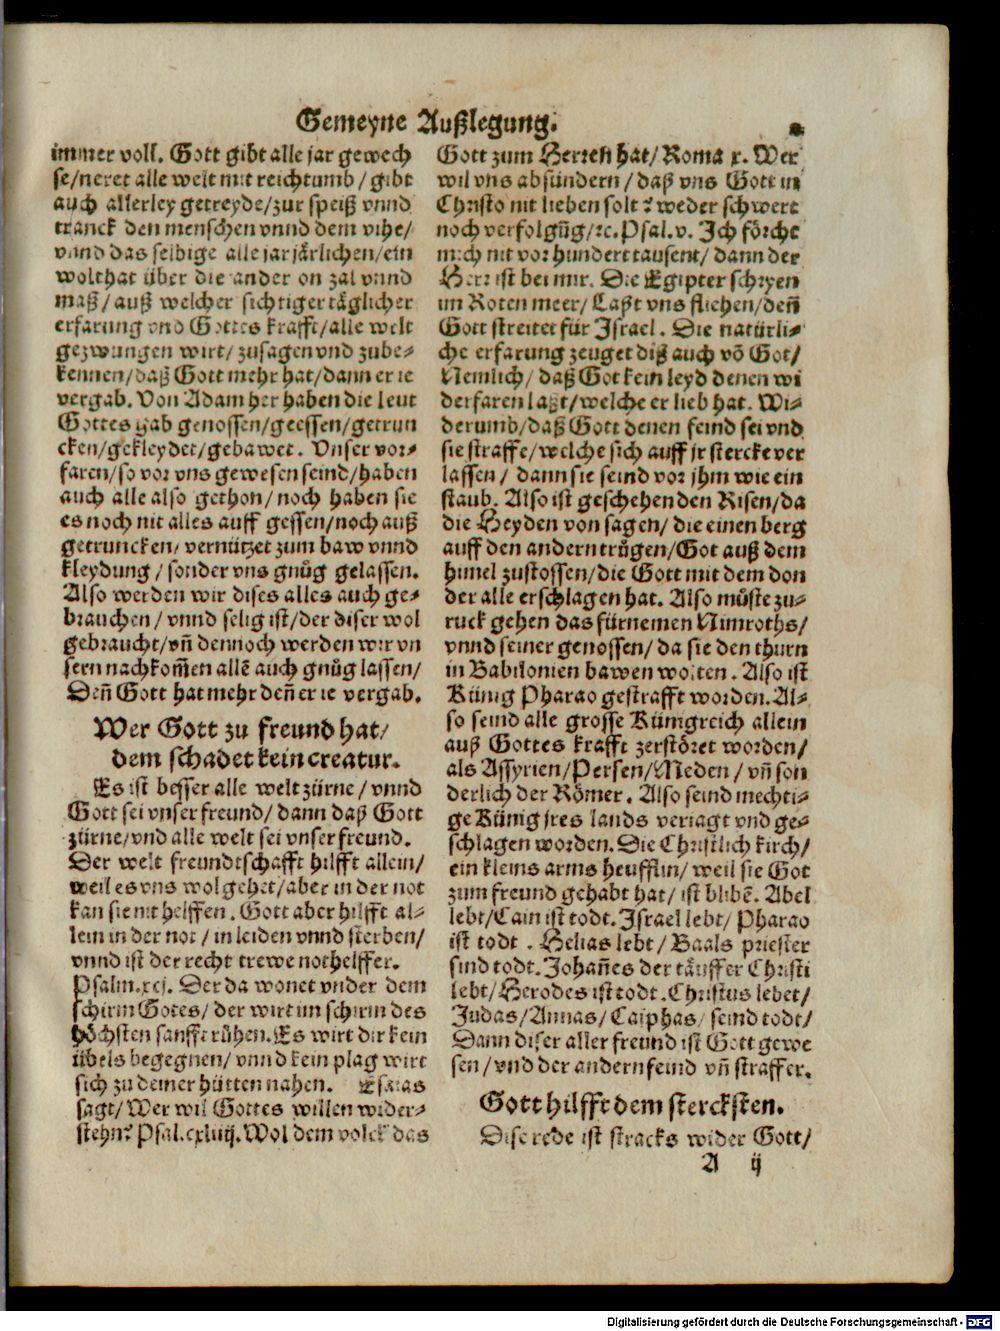 Gemeyne Außlegung.
immer voll. Gott gibt alle jar gewech
se/neret alle welt mit reichtumb/gibt
auch allerley getreyde/zur speiß vnnd
tranck den menschen vnnd dem vihe/
vnnd das selbige alle jar järlichen/ein
wolthat über die ander on zal vnnd
maß/auß welcher sichtiger täglicher
erfarung vnd Gottes krafft/alle welt
gezwungen wirt/zusagen vnd zube⸗
kennen/daß Gott mehr hat/dann er ie
vergab. Von Adam her haben die leut
Gottes gab genossen/geessen/getrun
cken/gekleydet/gebawet. Vnser vor⸗
faren/so vor vns gewesen seind/haben
auch alle also gethon/noch haben sie
es noch nit alles auff gessen/noch auß
getruncken/vernützet zum baw vnnd
kleydung/sonder vns gnůg gelassen.
Also werden wir dises alles auch ge⸗
brauchen/vnnd selig ist/der diser wol
gebraucht/vñ dennoch werden wir vn
sern nachkom̃en allẽ auch gnůg lassen/
Deñ Gott hat mehr deñ er ie vergab.
Wer Gott zu freund hat/
dem schadet kein creatur.
Es ist besser alle welt zürne/vnnd
Gott sei vnser freund/dann daß Gott
zürne/vnd alle welt sei vnser freund.
Der welt freundtschafft hilfft allein/
weil es vns wol gehet/aber in der not
kan sie nit helffen. Gott aber hilfft al⸗
lein in der not/in leiden vnnd sterben/
vnnd ist der recht trewe nothelffer.
Psalm.xcj. Der da wonet vnder dem
schirm Gotes/der wirt im schirm des
höchsten sanfft růhen. Es wirt dir kein
übels begegnen/vnnd kein plag wirt
sich zu deiner hütten nahen. Esaias
sagt/Wer wil Gottes willen wider⸗
stehn? Psal.cxliiij. Wol dem volck das
Gott zum Herren hat/Roma x. Wer
wil vns absündern/daß vns Gott in
Christo nit lieben solt? weder schwert
noch verfolgũg/ꝛc. Psal.v. Ich förche
mich nit vor hundert tausent/dann der
Herr ist bei mir. Die Egipter schryen
im Roten meer/Laßt vns fliehen/deñ
Gott streitet für Israel. Die natürli⸗
che erfarung zeuget diß auch võ Got/
Nemlich/daß Got kein leyd denen wi
derfaren laßt/welche er lieb hat. Wi⸗
derumb/daß Gott denen feind sei vnd
sie straffe/welche sich auff jr stercke ver
lassen/dann sie seind vor jhm wie ein
staub. Also ist geschehen den Risen/da
die Heyden von sagen/die einen berg
auff den andern trůgen/Got auß dem
himel zustossen/die Gott mit dem don
der alle erschlagen hat. Also můste zu⸗
ruck gehen das fürnemen Nimroths/
vnnd seiner genossen/da sie den thurn
in Babilonien bawen wolten. Also ist
Künig Pharao gestrafft worden. Al⸗
so seind alle grosse Künigreich allein
auß Gottes krafft zerstöret worden/
als Assyrien/Persen/Meden/vñ son
derlich der Römer. Also seind mechti⸗
ge Künig jres lands veriagt vnd ge⸗
schlagen worden. Die Christlich kirch/
ein kleins arms heufflin/weil sie Got
zum freund gehabt hat/ist blibẽ. Abel
lebt/Cain ist todt. Israel lebt/Pharao
ist todt. Helias lebt/Baals priester
sind todt. Johañes der täuffer Christi
lebt/Herodes ist todt. Christus lebet/
Judas/Annas/Caiphas/seind todt/
Dann diser aller freund ist Gott gewe
sen/vnd der andern feind vñ straffer.
Gott hilfft dem stercksten.
Dise rede ist stracks wider Gott/
A ij
Digitalisierung gefördert durch die Deutsche Forschungsgemeinschaft - DFG